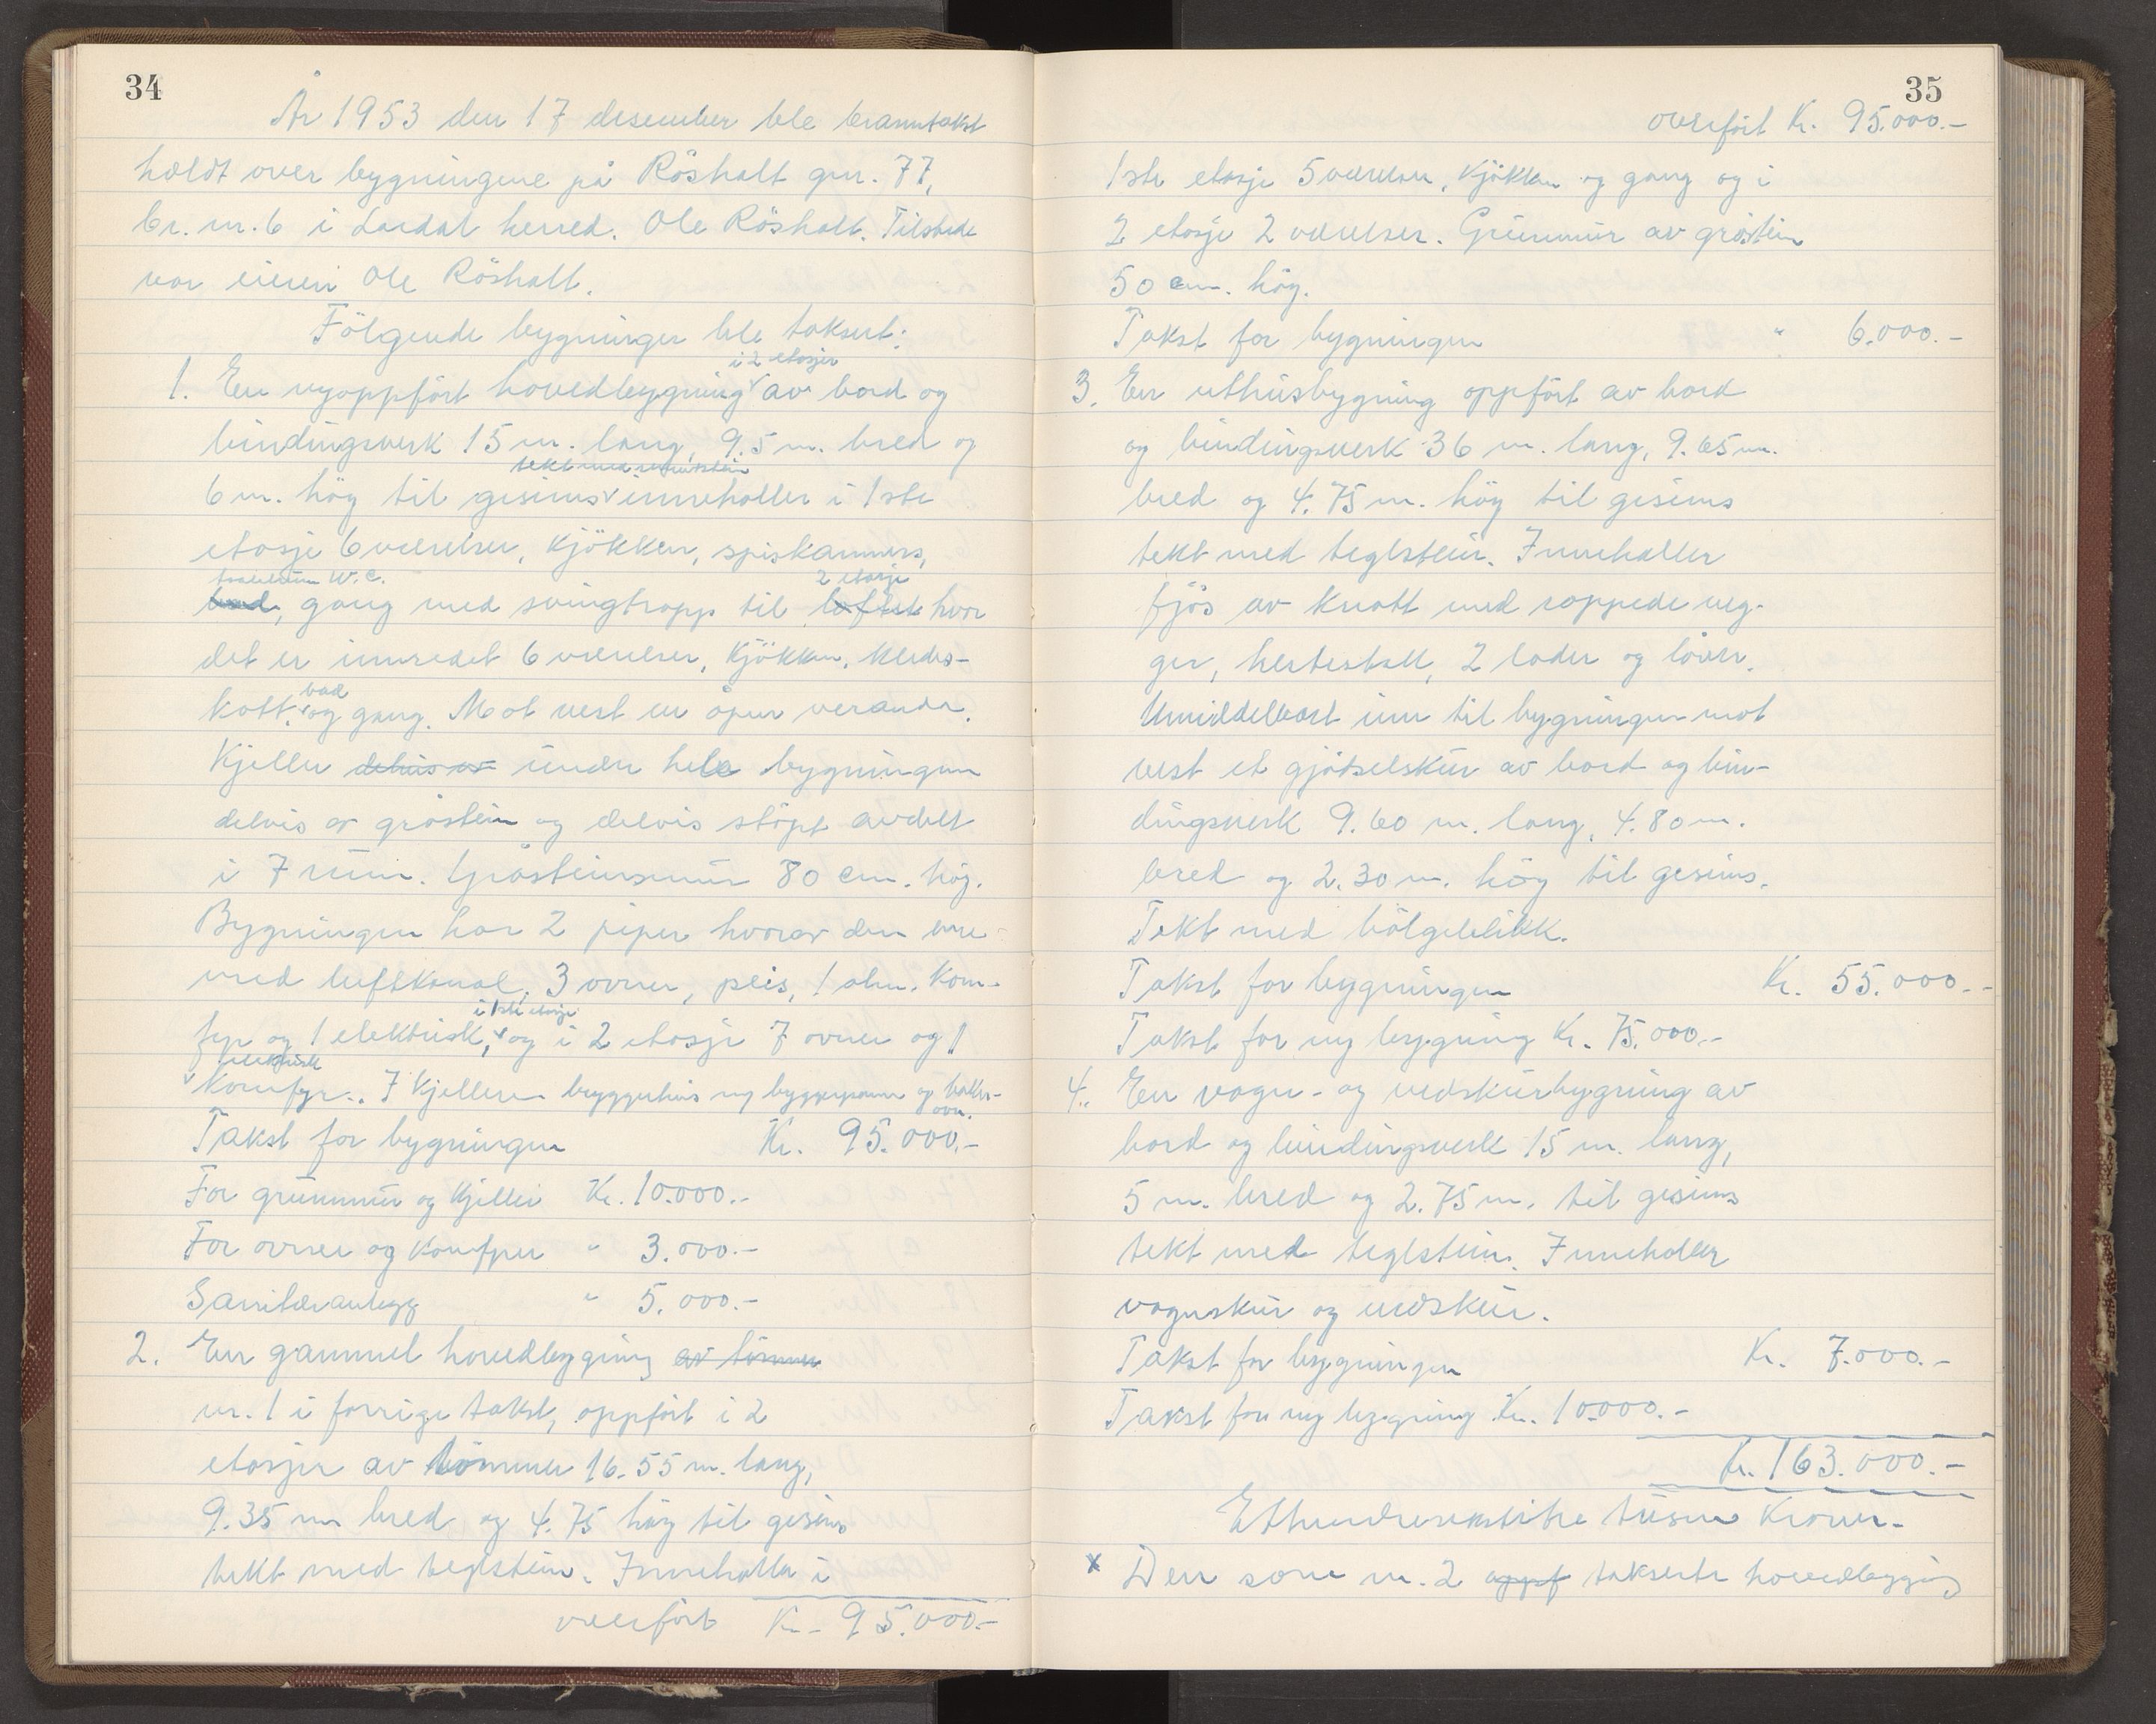 34
År 1953 den 17 desember ble branntakst
holdt over bygningene på Röshalt gnr. 77,
br. nr. 6 i Lardal herred. Ole Röshalt. Tilstede
var eieren Ole Röshalt.
Fölgende bygninger ble taksert:
i 2 etasjer
1. En nyoppfört hovedbygning av bord og
bindingsverk 15 m. lang, 9.5 m. bred og
tekt med sementstein
6 m. hög til gesims inneholler i 1ste
etasje 6 værelser, kjökken, spiskammers,
toalettrum W.C. 2 etasje
bad, gang med svingtrapp til loftet hvor
det er innredet 6 værelser, kjökken, kleds-
bad
kott, og gang. Mot vest en åpen veranda.
Kjeller delvis av under hele bygningen
delvis av gråstein og delvis stöpt avdelt
i 7 rum. Gråsteinsmur 80 cm. hög.
Bygningen har 2 piper hvorav den ene
med luftkanal. 3 ovner, peis, 1 alm. kom-
i 1ste etasje
fyr og 1 elektrisk, og i 2 etasje 7 ovner og 1
elektrisk
komfyr. I kjelleren bryggerhus og bryggepanne og baker-
ovn.
Takst for bygningen Kr. 95.000.-
For grunnmur og kjeller Kr. 10.000.-
For ovner og komfyrer " 3.000.-
Sanitæranlegg " 5.000.-
2. En gammel hovedbygning av tömmer
nr. 1 i forrige takst, oppfört i 2
etasjer av tömmer 16.55 m. lang,
9.35 m bred og 4.75 hög til gesims
tekt med teglstein. Inneholler i
overfört Kr. 95.000.-
35
overfört Kr. 95.000.-
1ste etasje 5 værelser, kjökken og gang og i
2 etasje 2 værelser. Grunnmur av gråstein
50 cm. hög.
Takst for bygningen " 6.000.-
3. En uthusbygning oppfört av bord
og bindingsverk 36 m. lang, 9.65 m.
bred og 4.75 m. hög til gesims
tekt med teglstein. Inneholler
fjös av knott med rappede veg-
ger, hestestall, 2 lader og låver.
Umiddelbart inn til bygningen mot
vest et gjödselskur av bord og bin-
dingsverk 9.60 m. lang, 4.80 m.
bred og 2.30 m. hög til gesims.
Tekt med bölgeblikk.
Takst for bygningen Kr. 55.000.-
Takst for ny bygning Kr. 75.000.-
4. En vogn- og vedskurbygning av
bord og bindingsverk 15 m. lang,
5 m. bred og 2.75 m. til gesims
tekt med teglstein. Inneholler
vognskur og vedskur.
Takst for bygningen Kr. 7.000.-
Takst for ny bygning Kr. 10.000.-
Kr. 163.000.-
Etthundreosekstitre tusen kroner.
x Den som nr. 2 oppf takserte hovedbygning